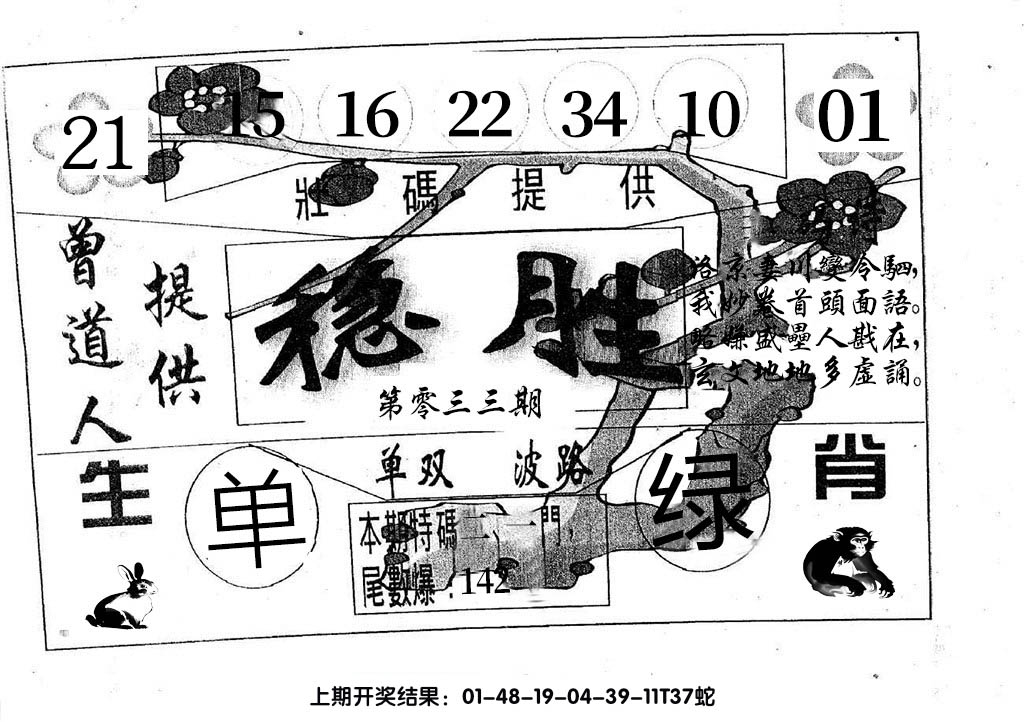 21 15 16 22 34 10 01
壯碼提供
特
曾道人
提供
稳胜
第零三三期
洛京妻川變令駟，
我妙卷首頭面語。
略嫌盛壘人戡在，
玄文地地多虛誦。
单双 波路
生肖
单
绿
本期特碼二、一門，
尾數爆：142
上期开奖结果：01-48-19-04-39-11T37蛇